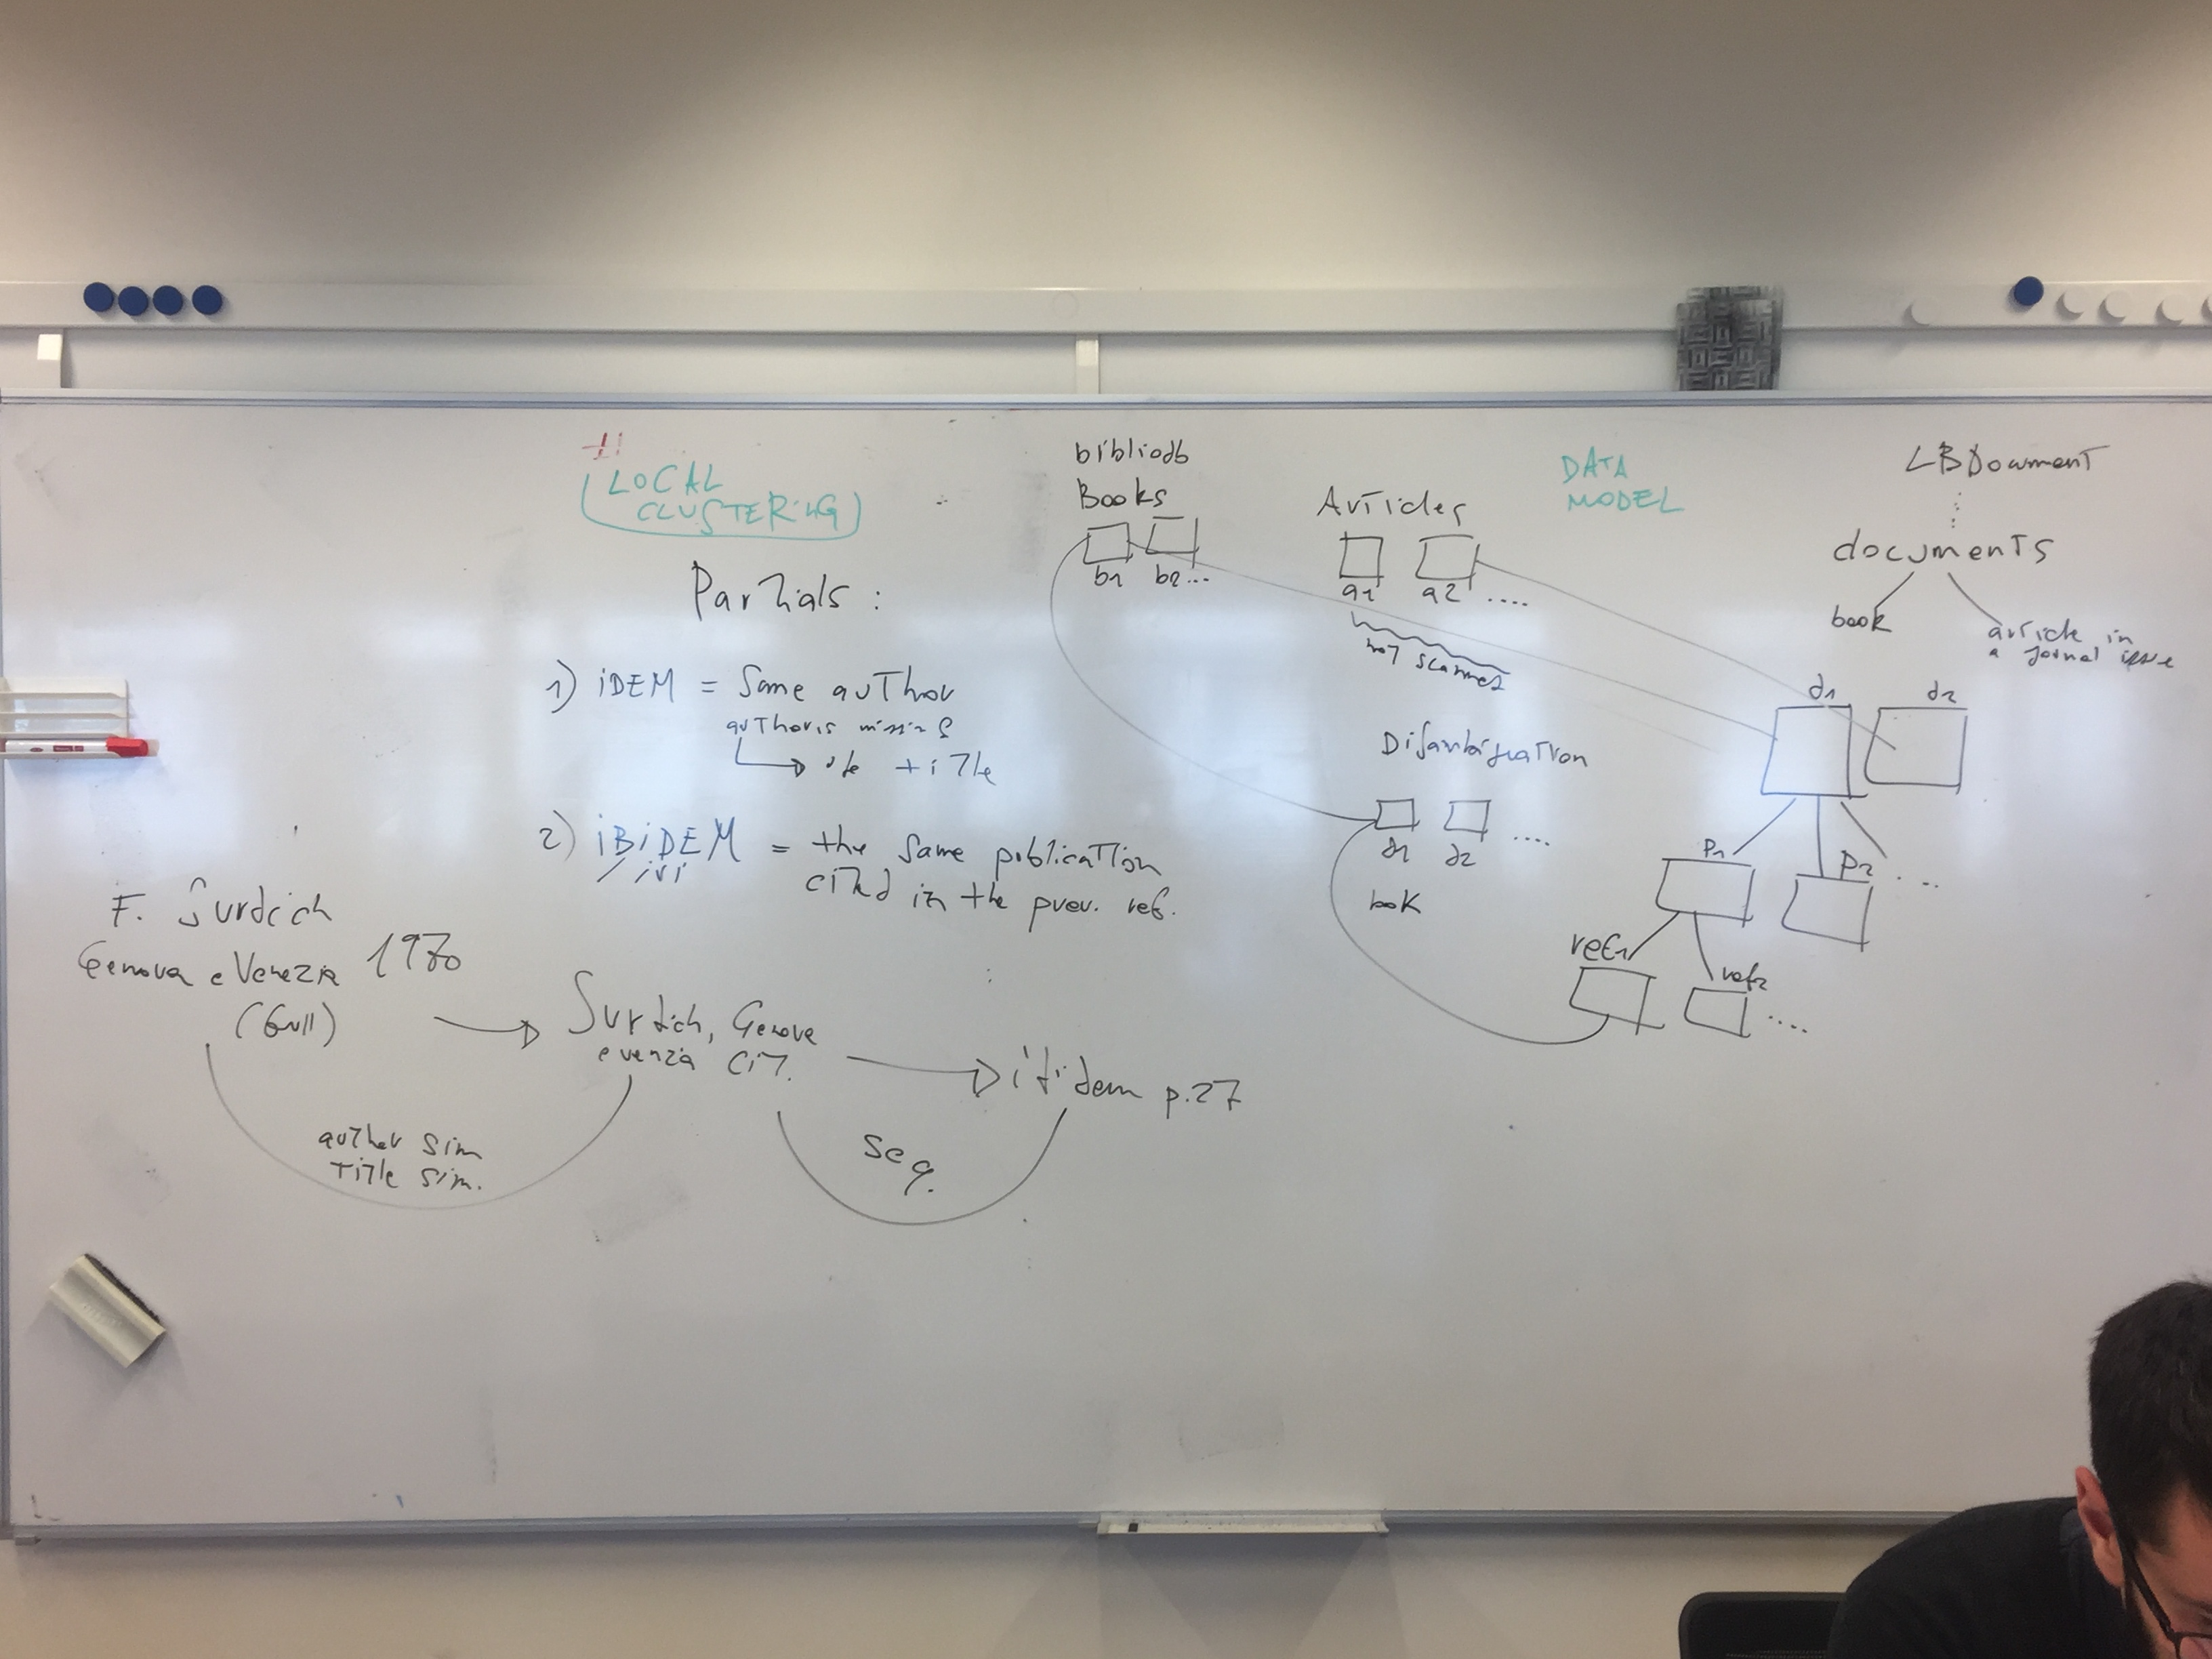 LOCAL
CLUSTERING
Partials :
1) iDEM = Same author
author is missing
+ iTle
2) iBiDEM = the same publication
/ ivi
cited in the prev. ref.
F. Surdich
Genova e Venezia 1970
(Full)
Surdich, Genova
e venzia CiT.
p. 27
author sim
Title sim.
Seq.
bibliodb
Books
b1 b2...
Articles
a1 a2 ....
not scanned
DATA
MODEL
LBDocument
documents
book
article in
a jornal issue
d1 d2
p1 p2 ...
ref1 ref2 ....
Disambiguation
d1 d2 ....
book